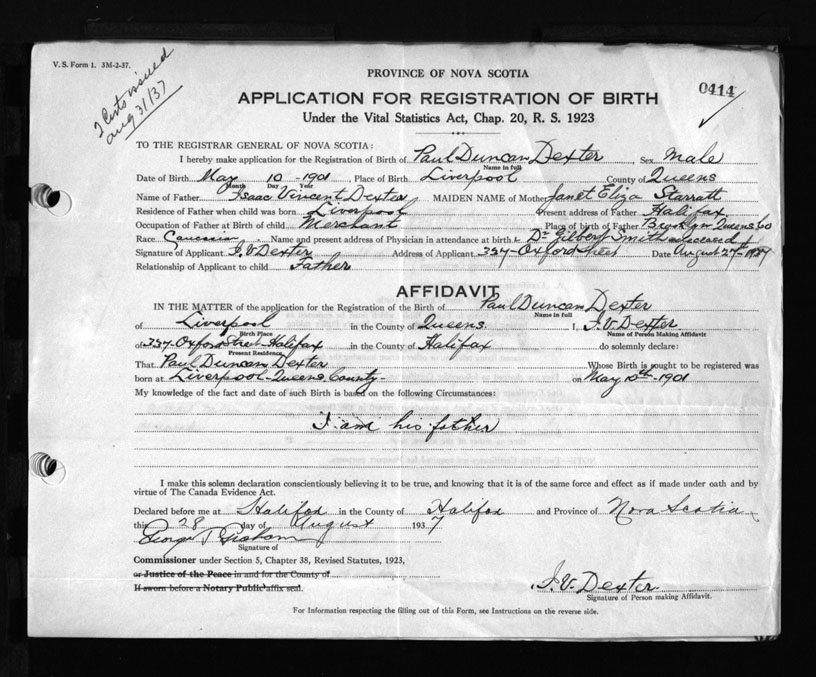 V. S. Form 1. 3M-2-37.
2 Certs issued
Aug 31/37
PROVINCE OF NOVA SCOTIA
0414
APPLICATION FOR REGISTRATION OF BIRTH
Under the Vital Statistics Act, Chap. 20, R. S. 1923
TO THE REGISTRAR GENERAL OF NOVA SCOTIA:
I hereby make application for the Registration of Birth of Paul Duncan Dexter, Sex male
Name in full
Date of Birth May 10 - 1901, Place of Birth Liverpool County of Queens
Month Day Year
Name of Father Isaac Vincent Dexter MAIDEN NAME of Mother Janet Eliza Starratt
Residence of Father when child was born Liverpool Present address of Father Halifax
Occupation of Father at Birth of child Merchant Place of birth of Father Brooklyn Queens Co
Race Name and present address of Physician in attendance at birth Dr Gilbert Smith deceased
Signature of Applicant I. V. Dexter Address of Applicant 357 Oxford Street Date August 27th 1937
Relationship of Applicant to child Father
AFFIDAVIT
IN THE MATTER of the application for the Registration of the Birth of Paul Duncan Dexter
Name in full
of Liverpool in the County of Queens I, I. V. Dexter
Birth Place Name of Person Making Affidavit
of 357 Oxford Street Halifax in the County of Halifax do solemnly declare:
Present Residence
That Paul Duncan Dexter Whose Birth is sought to be registered was
born at Liverpool - Queens County - on May 10th - 1901
My knowledge of the fact and date of such Birth is based on the following Circumstances:
I am his father
I make this solemn declaration conscientiously believing it to be true, and knowing that it is of the same force and effect as if made under oath and by
virtue of The Canada Evidence Act.
Declared before me at Halifax in the County of Halifax and Province of Nova Scotia
this 28 day of August 1937
George T Graham
Signature of
Commissioner under Section 5, Chapter 38, Revised Statutes, 1923,
or Justice of the Peace in and for the County of
If sworn before a Notary Public affix seal.
I. V. Dexter
Signature of Person making Affidavit.
For Information respecting the filling out of this Form, see Instructions on the reverse side.